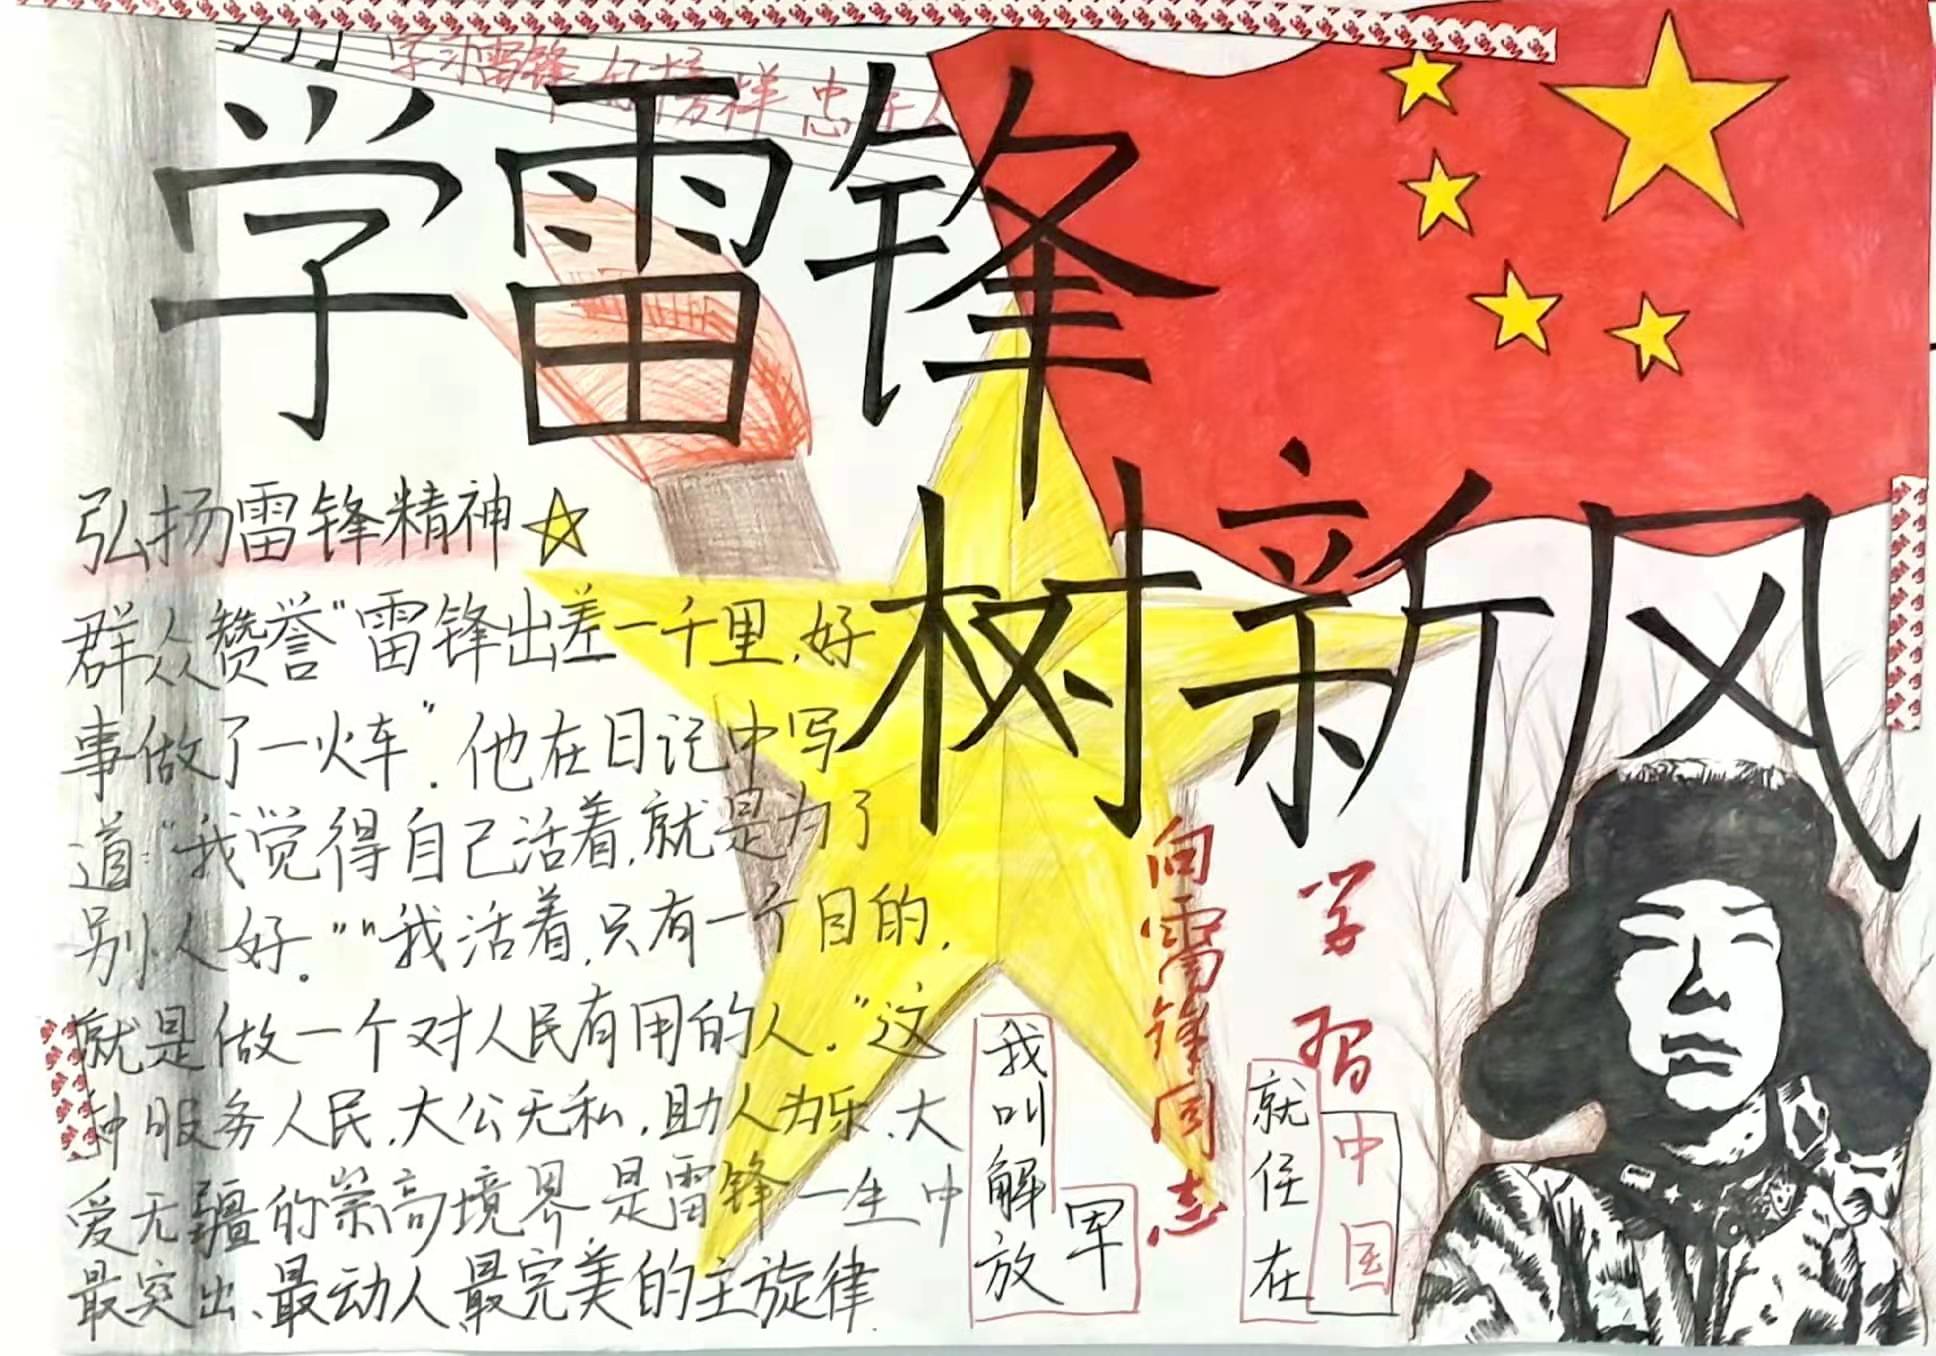 学习雷锋 好榜样 忠于人
学雷锋
树新风
弘扬雷锋精神
群众赞誉"雷锋出差一千里,好
事做了一火车".他在日记中写
道:"我觉得自己活着,就是为了
别人好.""我活着,只有一个目的,
就是做一个对人民有用的人."这
种服务人民,大公无私,助人为乐、大
爱无疆的崇高境界是雷锋一生中
最突出、最动人、最完美的主旋律.
我叫解放军
向雷锋同志
学习
就住在
中国